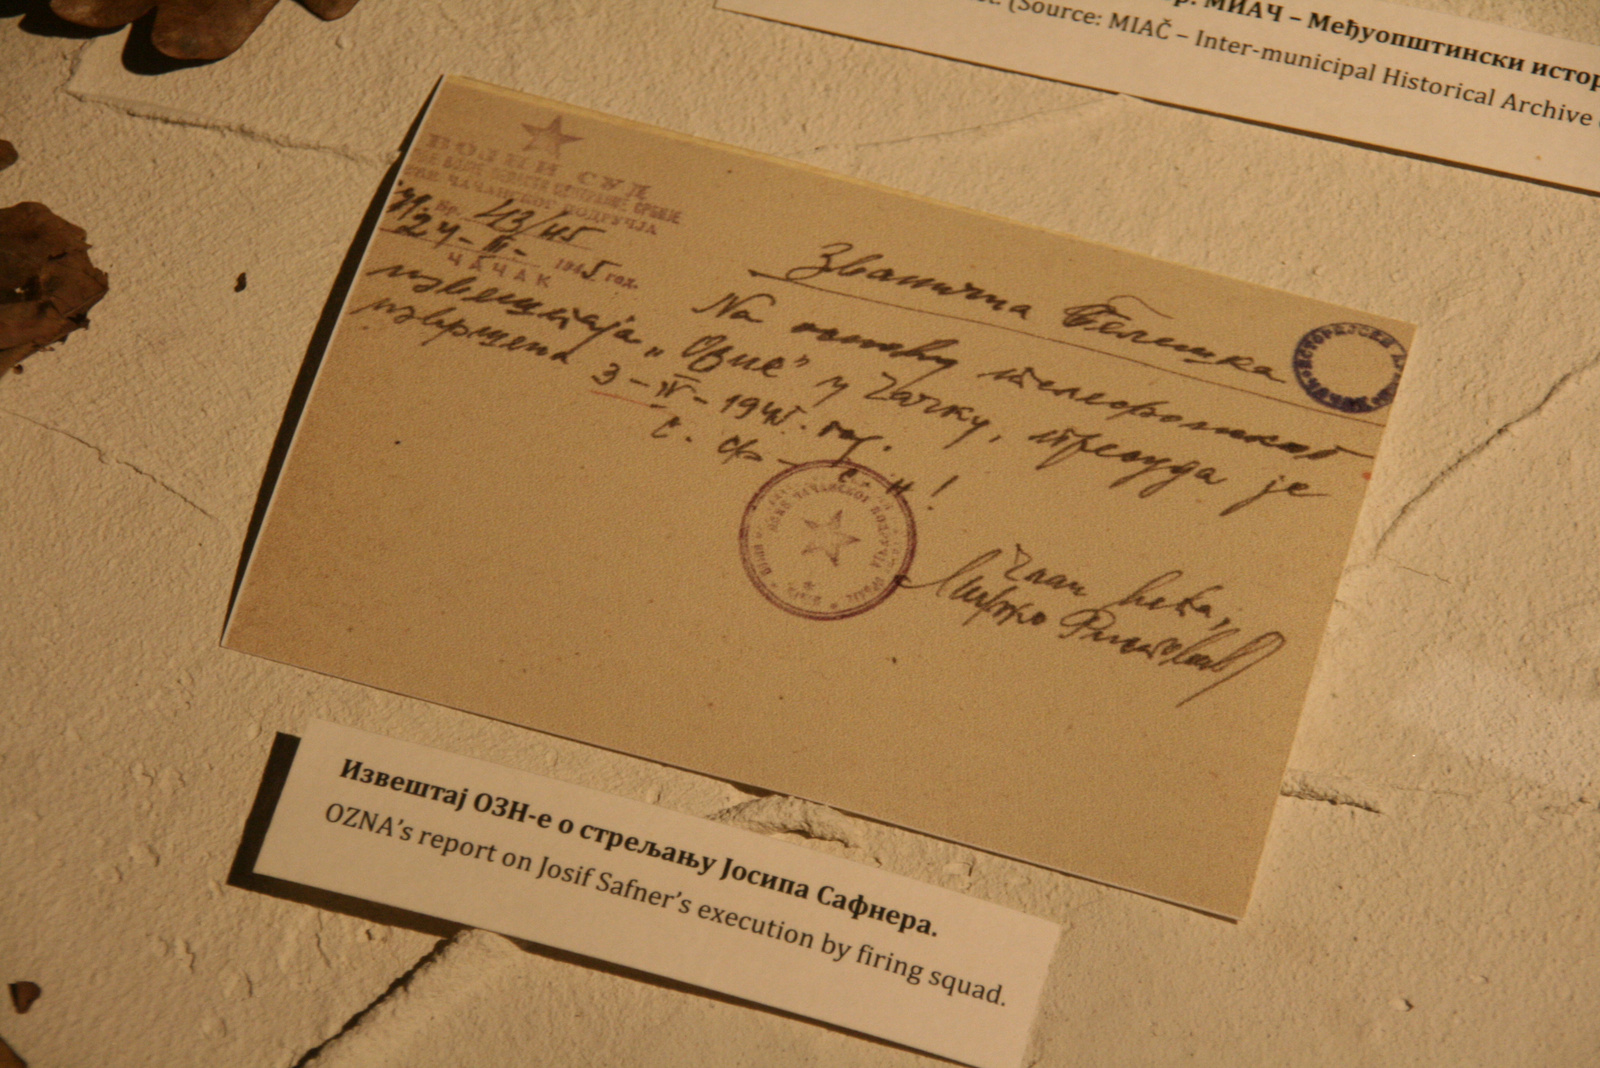 р. МИАЧ – Међуопштински истор
(Source: MIAČ – Inter-municipal Historical Archive
ВОЈНИ СУД
ЧАЧАНСКОГ ПОДРУЧЈА
Бр. 43/45
24-III-1945 год.
ЧАЧАК
Званична белешка
На основу телефонског
извештаја „Озне" у Чачку, пресуда је
извршена 3-IV-1945. год.
С. Ф. – С. Н!
Члан већа,
Мирко
ИСТОРИЈСКИ
ЧАЧАНСКОГ ПОДРУЧЈА
Извештај ОЗН-е о стрељању Јосипа Сафнера.
OZNA's report on Josif Safner's execution by firing squad.